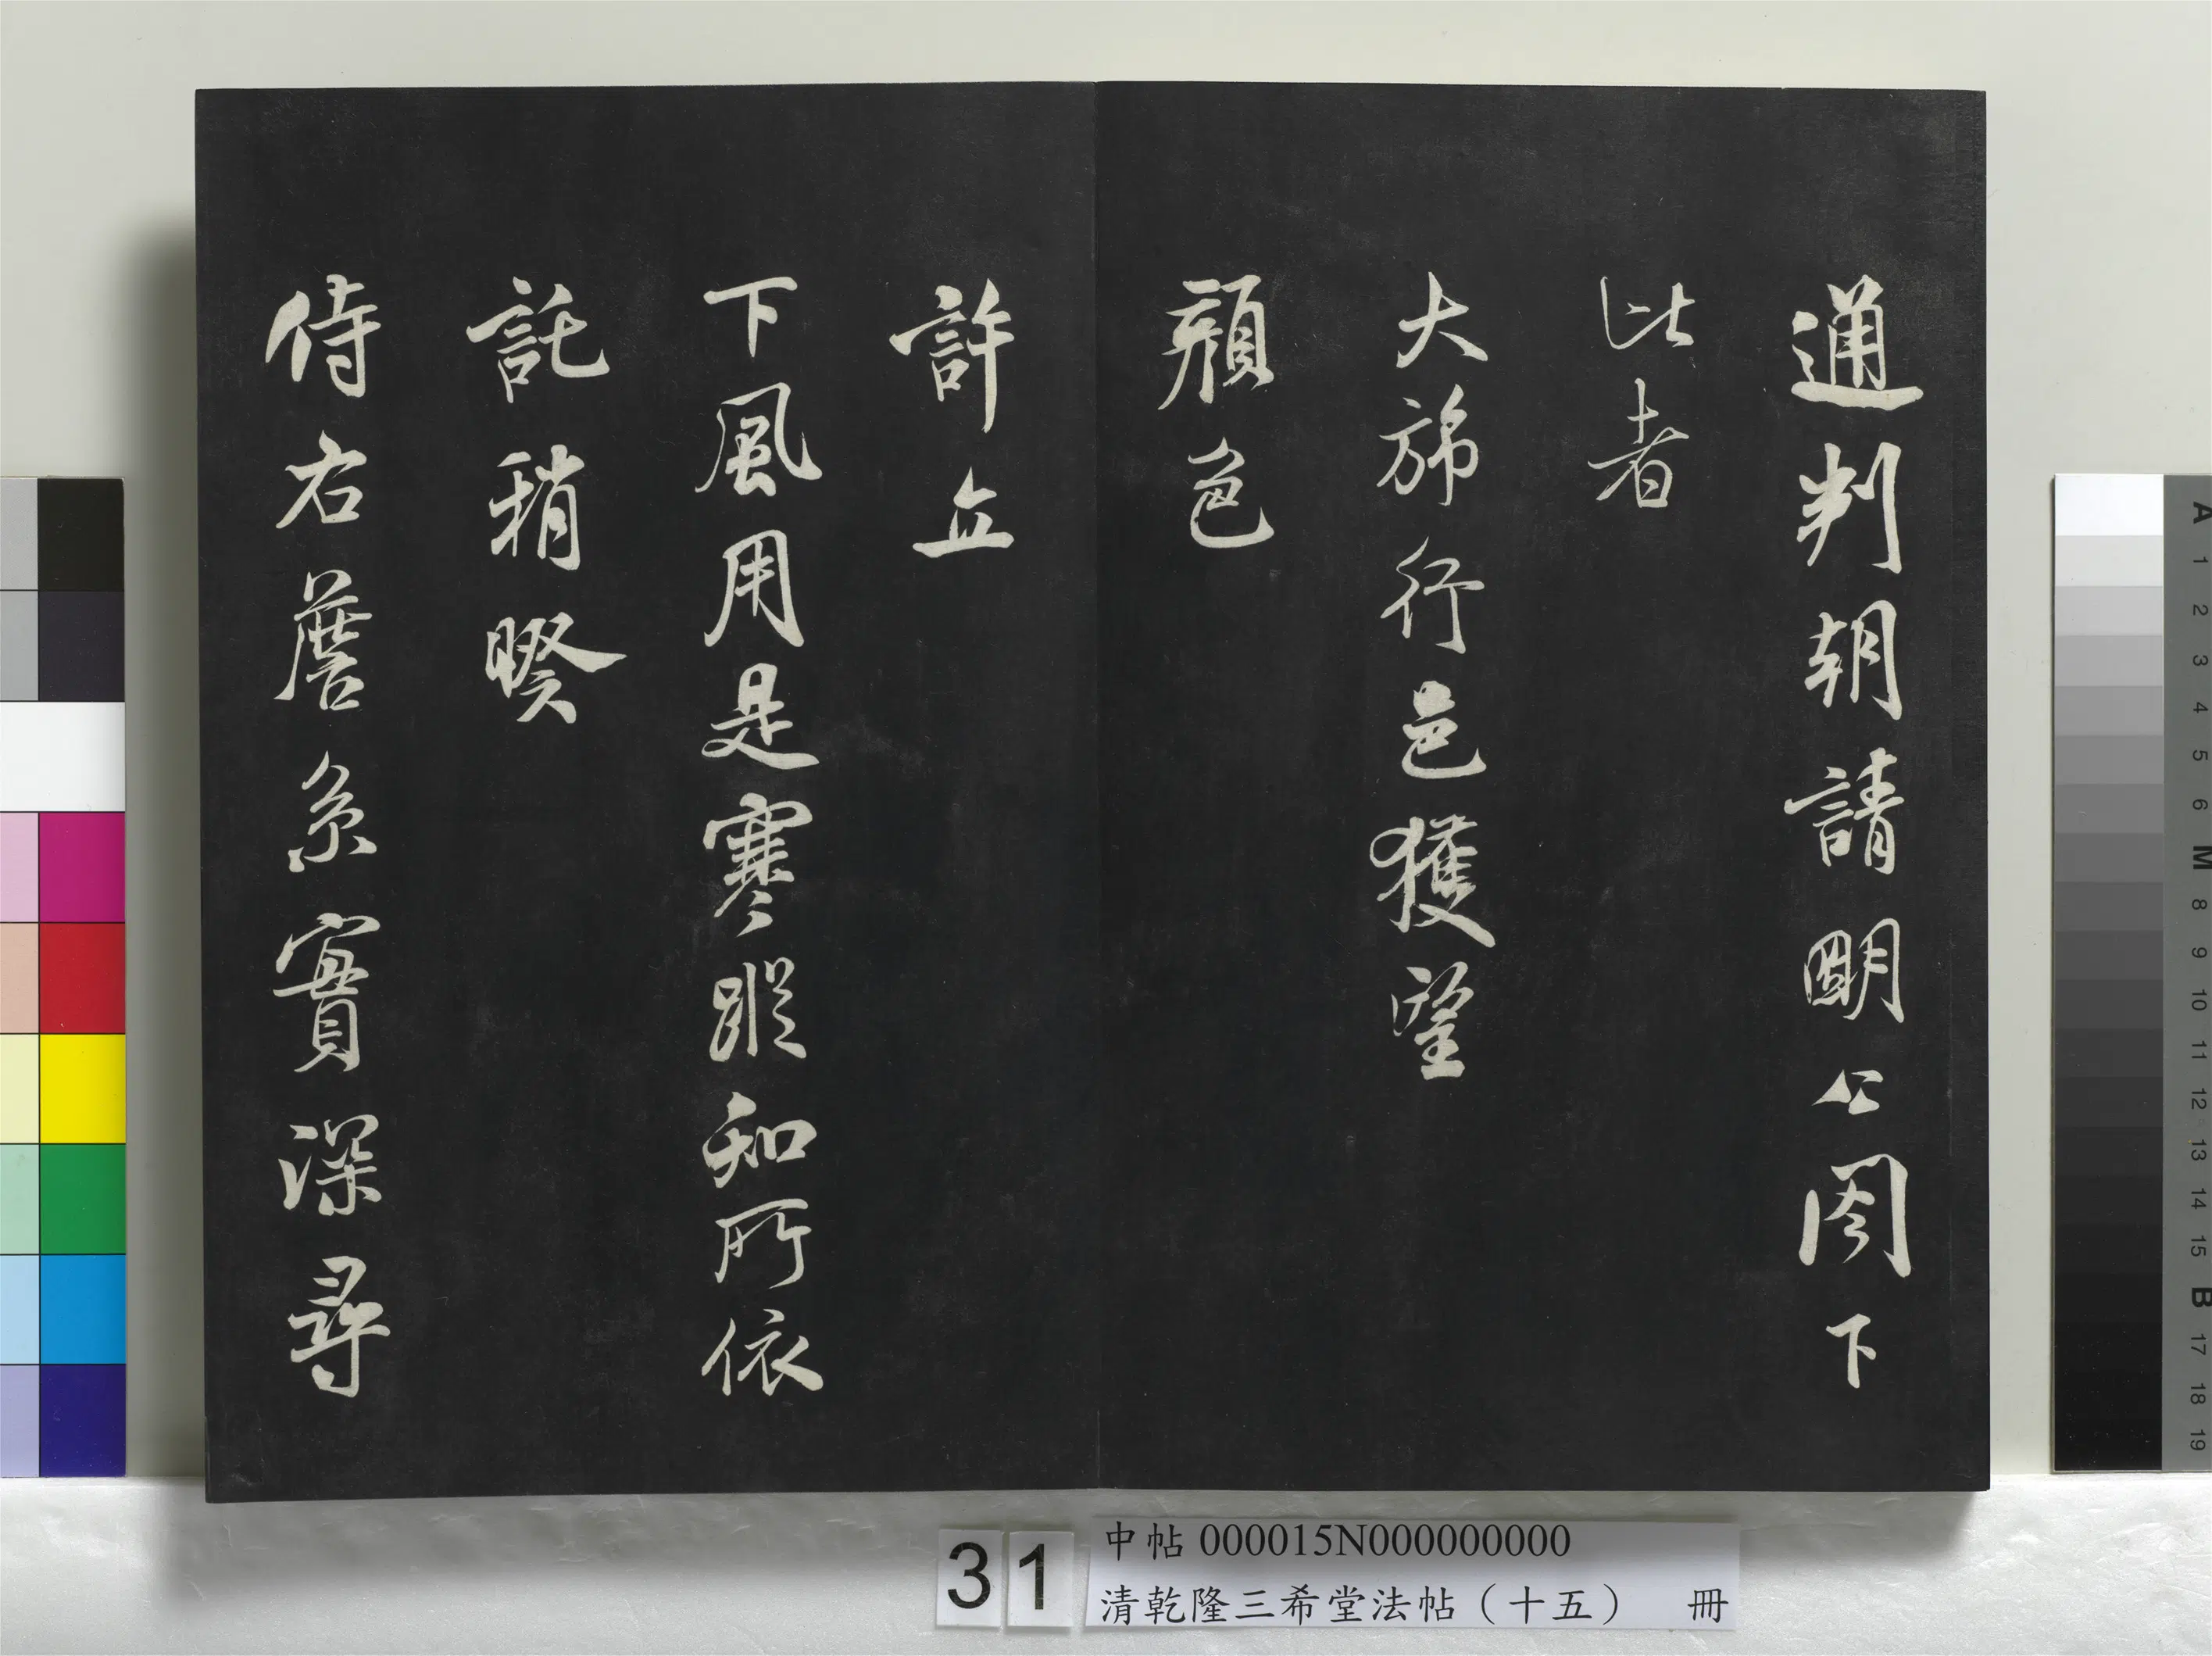 通判朝請明公閣下
比者
大旆行邑獲望
顏色
許立
下風用是寒蹤知所依
託稍暌
侍右詹系實深尋
31
中帖 000015N000000000
清乾隆三希堂法帖（十五） 冊
A 1 2 3 4 5 6 M 8 9 10 11 12 13 14 15 B 17 18 19